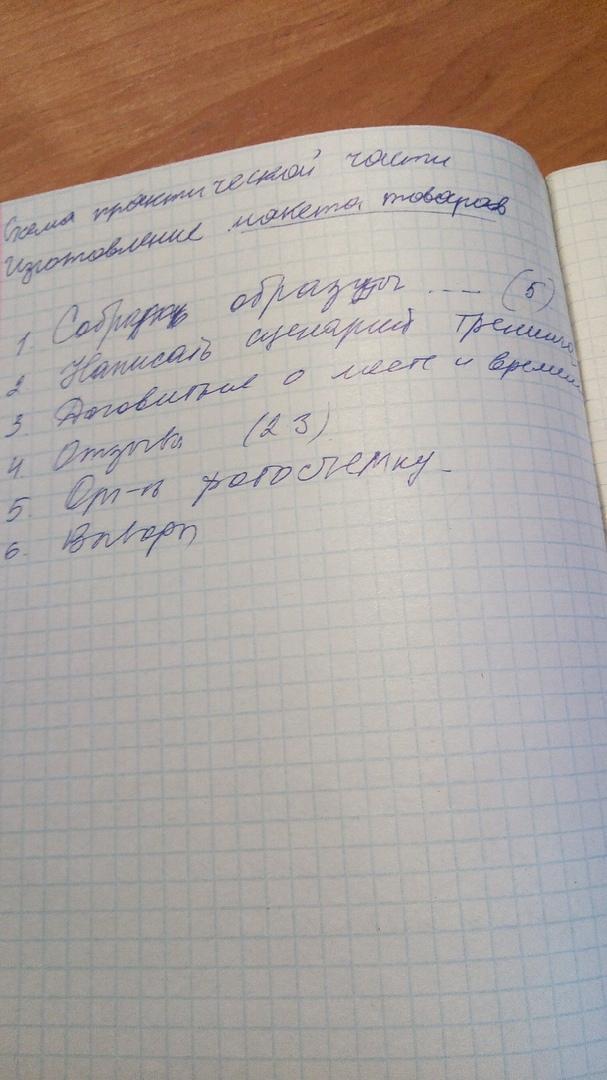 Схема практической части
Изготовление макета товаров
1. Собрать образцы .... (5)
2. Написать сценарий тренинга
3. Договиться о месте и времени
4. Отзывы (23)
5. Орг-ть фотосъемку.
6. Выводы